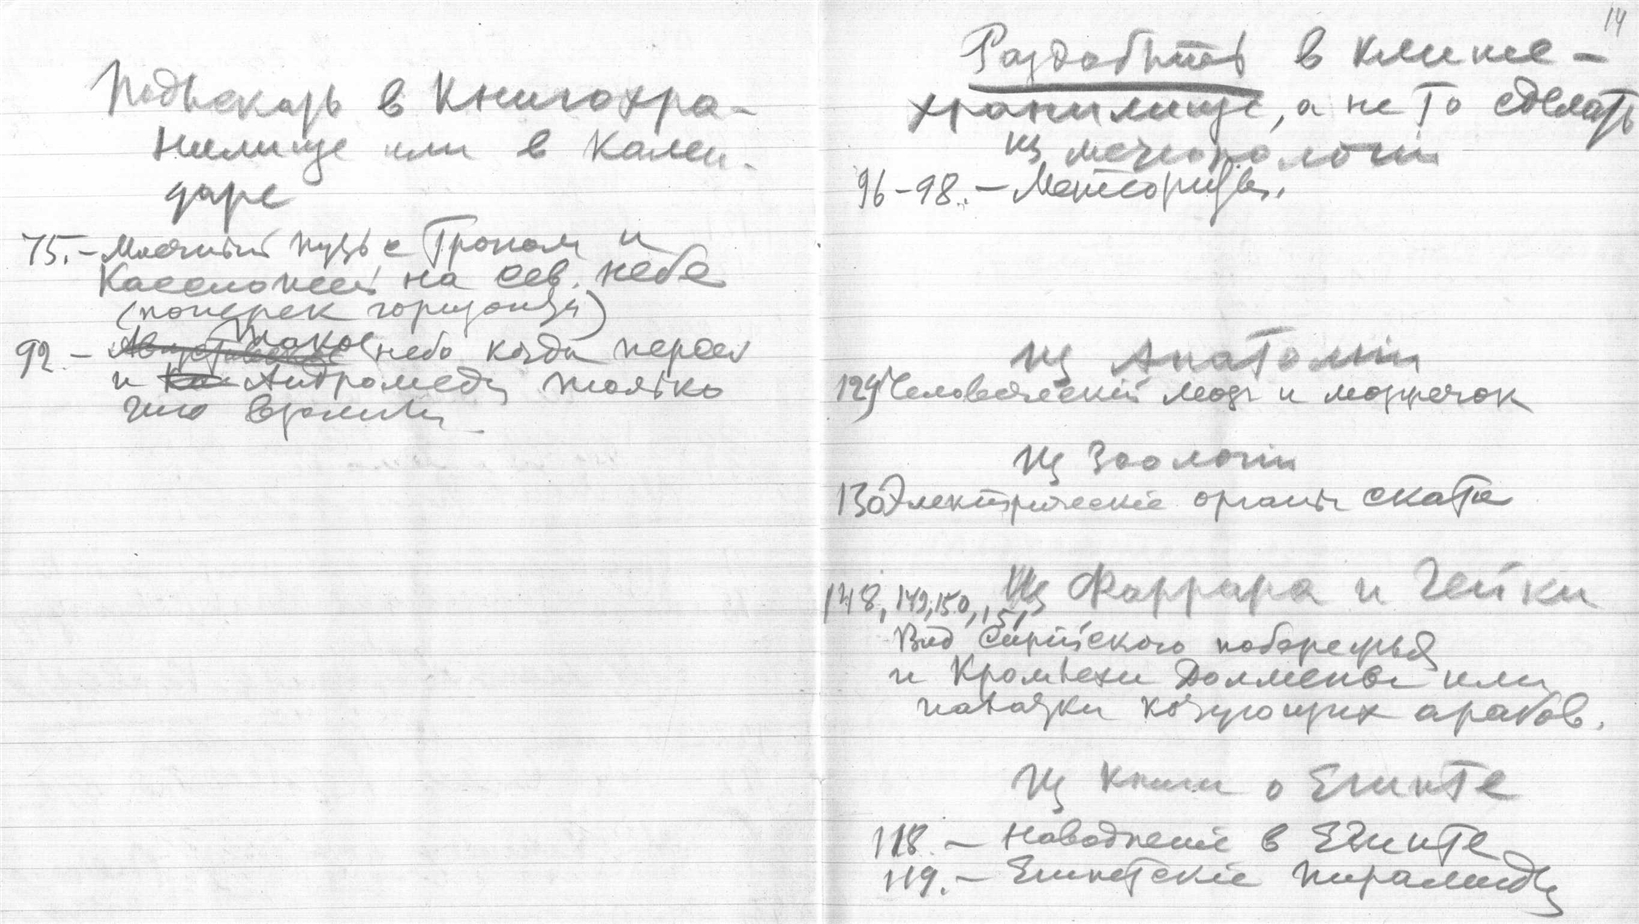 Подыскать в Книгохра-
нилище или в Кален-
даре
75. – Млечный путь с Троном и
Кассиопеей на сев. небе
(поперек горизонта)
92 – такое небо когда персей
и Андромеда только
что взошли
14
Раздобыть в книго-
хранилище, а не то сделать
из метеорологии
96–98. – Метеориты.
Из Анатомии
129) Человеческий мозг и мозжечок
Из Зоологии
130 Электрические органы ската
Из Фаррара и Гейки
148, 149, 150, 151,
Вид Сирийского побережья
и Кромлехи Долмены или
палатки кочующих арабов.
Из книги о Египте
118. – Наводнение в Египте
119. – Египетские пирамиды